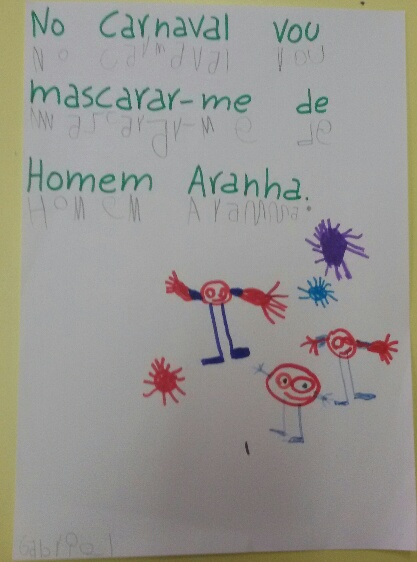 No Carnaval vou
No Carnaval vou
mascarar-me de
mascarar-me de
Homem Aranha.
Homem Aranha.
Gabriel